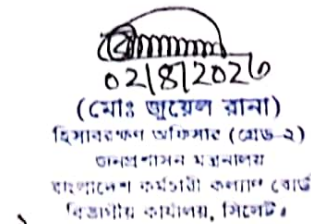 02/8/2026
(মোঃ জুয়েল রানা)
হিসাবরক্ষণ অফিসার (গ্রেড-২)
জনপ্রশাসন মন্ত্রণালয়
বাংলাদেশ কর্মচারী কল্যাণ বোর্ড
বিভাগীয় কার্যালয়, সিলেট।